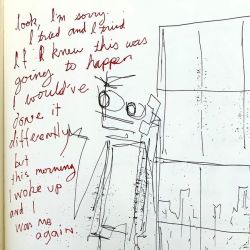 look, I'm sorry.
I tried and I tried
If I knew this was
going to happen
I would've
done it
differently
but
this morning
I woke up
and I
was me
again.